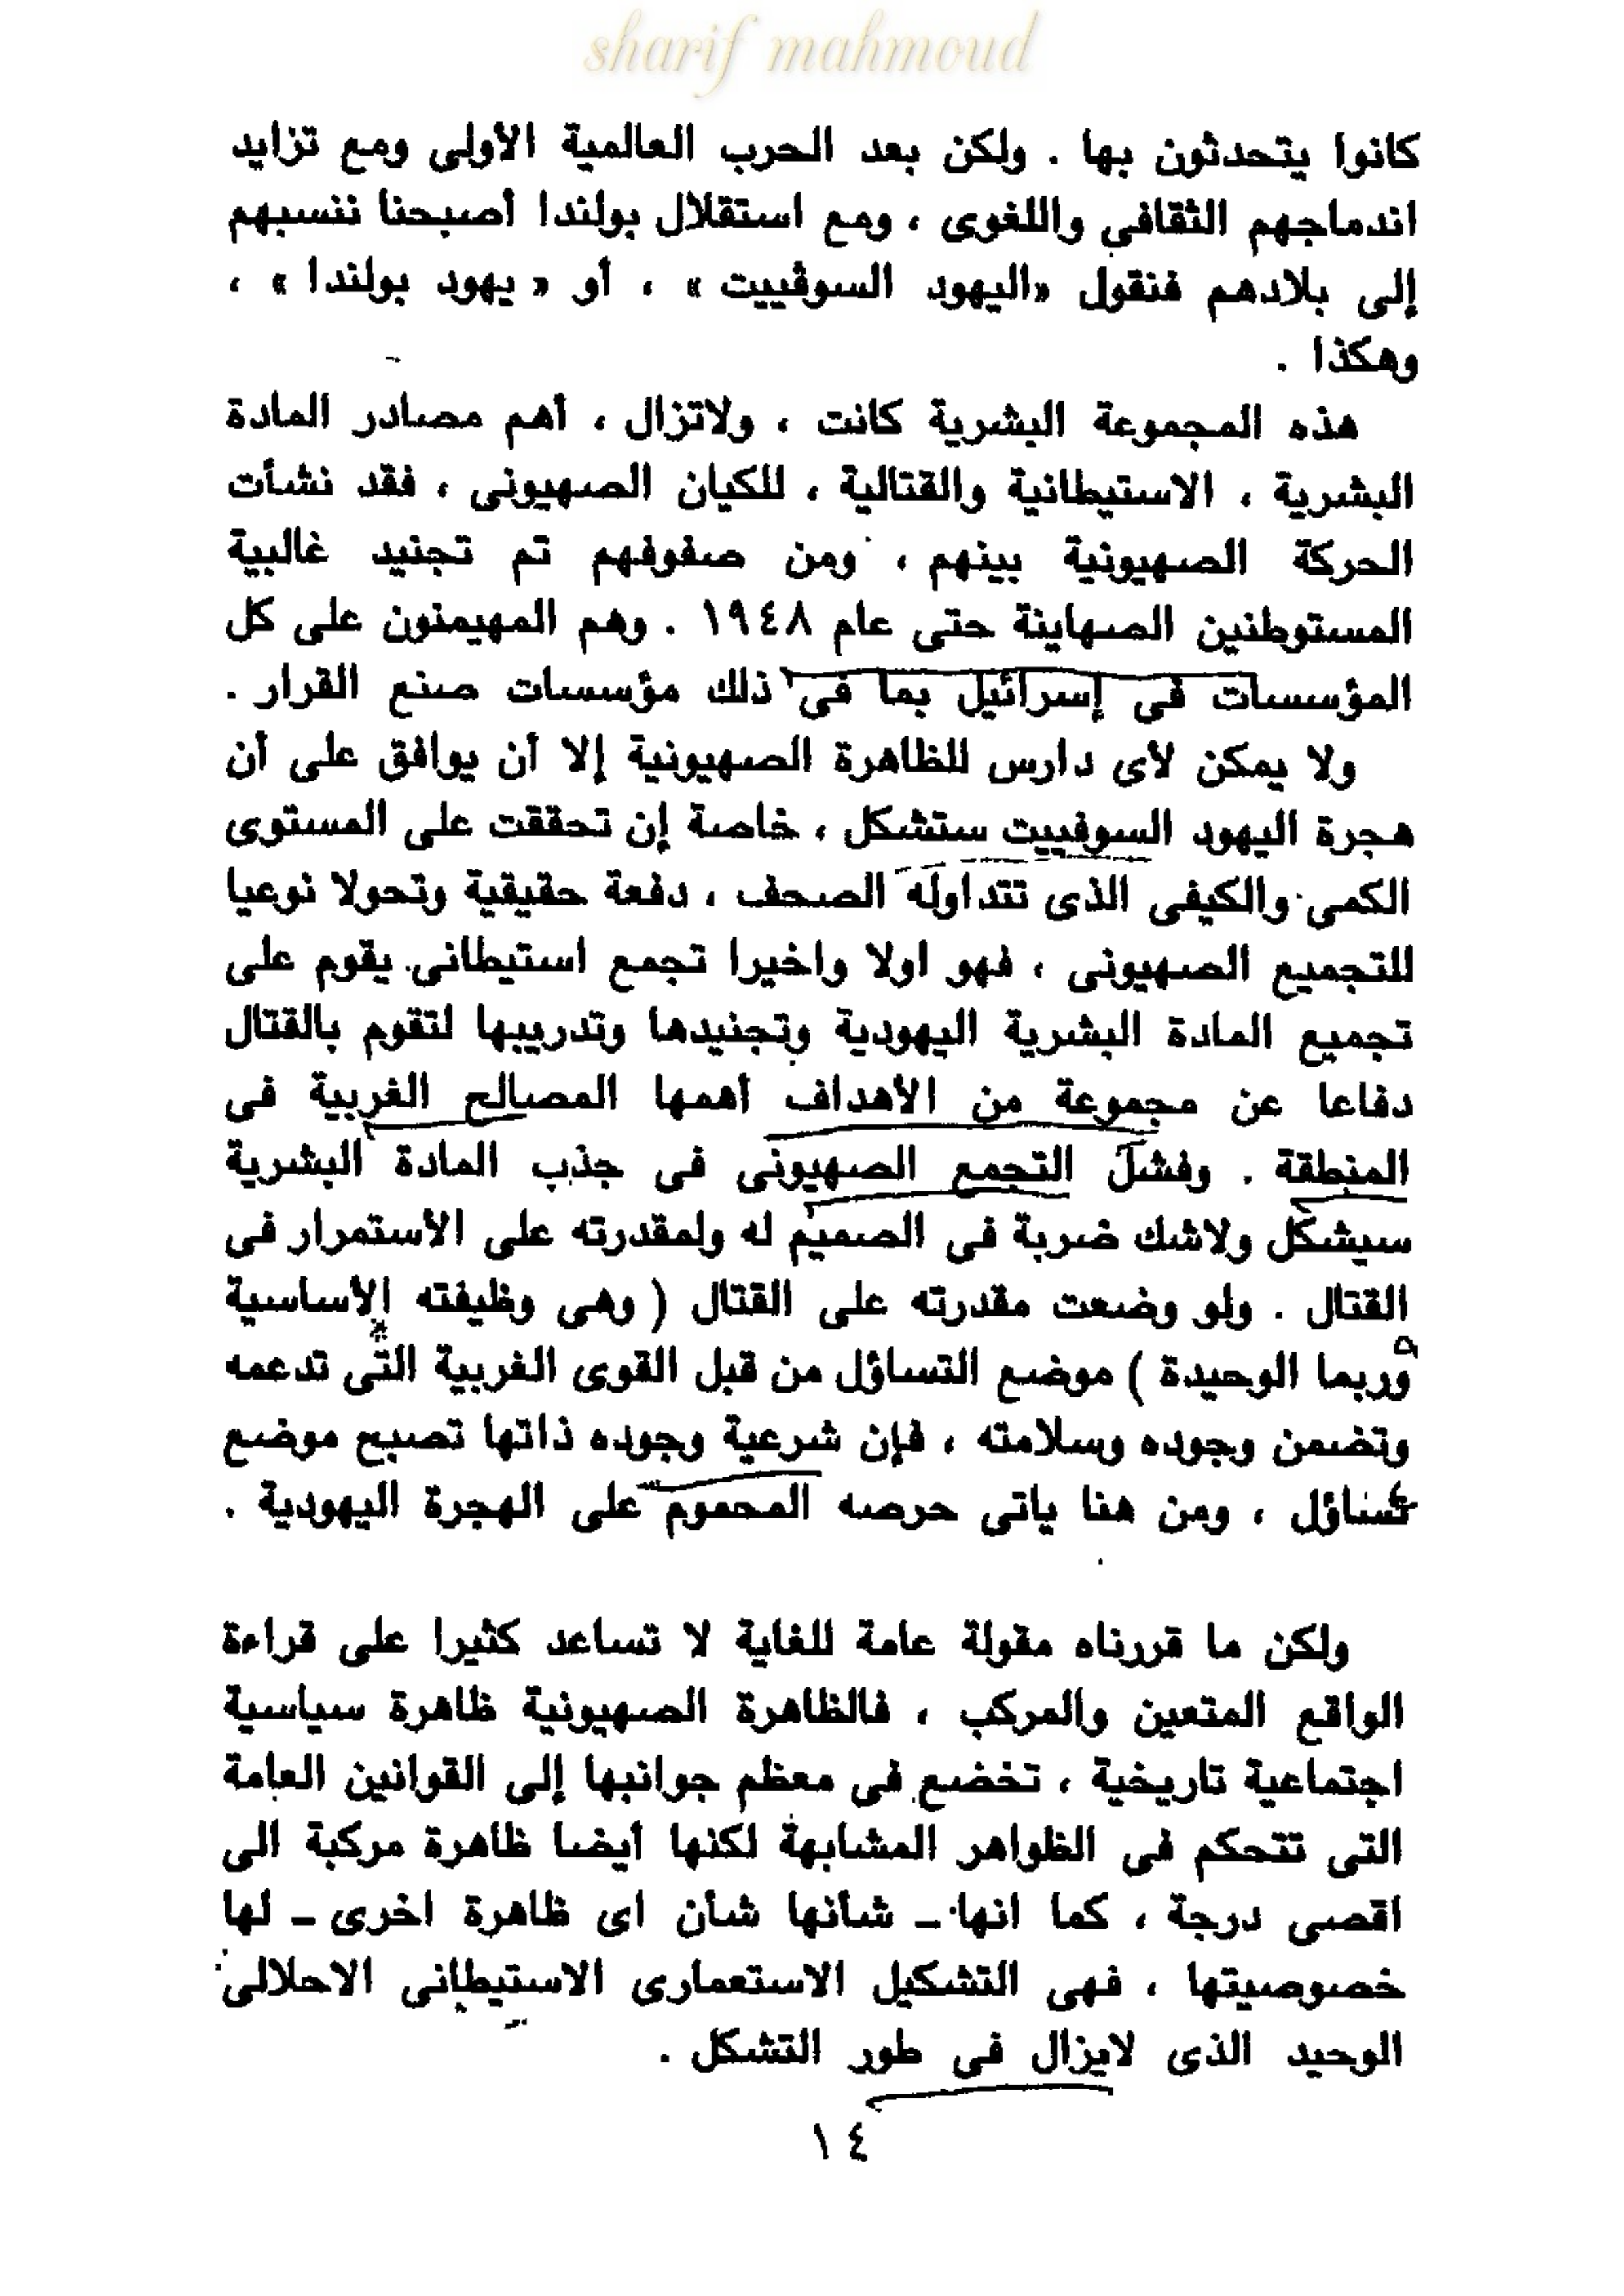 sharif mahmoud
كانوا يتحدثون بها . ولكن بعد الحرب العالمية الأولى ومع تزايد
اندماجهم الثقافي واللغوى ، ومع استقلال بولندا أصبحنا ننسبهم
إلى بلادهم فنقول «اليهود السوڤييت » ، أو « يهود بولندا » ،
وهكذا .
هذه المجموعة البشرية كانت ، ولاتزال ، أهم مصادر المادة
البشرية ، الاستيطانية والقتالية ، للكيان الصهيونى ، فقد نشأت
الحركة الصهيونية بينهم ، ومن صفوفهم تم تجنيد غالبية
المستوطنين الصهاينة حتى عام ١٩٤٨ . وهم المهيمنون على كل
المؤسسات فى إسرائيل بما فى ذلك مؤسسات صنع القرار .
ولا يمكن لأى دارس للظاهرة الصهيونية إلا أن يوافق على أن
هجرة اليهود السوفييت ستشكل ، خاصة إن تحققت على المستوى
الكمى والكيفى الذى تتداوله الصحف ، دفعة حقيقية وتحولا نوعيا
للتجميع الصهيونى ، فهو اولا واخيرا تجمع استيطانى يقوم على
تجميع المادة البشرية اليهودية وتجنيدها وتدريبها لتقوم بالقتال
دفاعا عن مجموعة من الأهداف أهمها المصالح الغربية فى
المنطقة . وفشل التجمع الصهيونى فى جذب المادة البشرية
سيشكل ولاشك ضربة فى الصميم له ولمقدرته على الأستمرار فى
القتال . ولو وضعت مقدرته على القتال ( وهى وظيفته الأساسية
وربما الوحيدة ) موضع التساؤل من قبل القوى الغربية التى تدعمه
وتضمن وجوده وسلامته ، فإن شرعية وجوده ذاتها تصبح موضع
تساؤل ، ومن هنا ياتى حرصه المحموم على الهجرة اليهودية .
ولكن ما قررناه مقولة عامة للغاية لا تساعد كثيرا على قراءة
الواقع المتعين والمركب ، فالظاهرة الصهيونية ظاهرة سياسية
اجتماعية تاريخية ، تخضع فى معظم جوانبها إلى القوانين العامة
التى تتحكم فى الظواهر المشابهة لكنها أيضا ظاهرة مركبة الى
اقصى درجة ، كما انها ـ شأنها شأن اى ظاهرة اخرى ـ لها
خصوصيتها ، فهى التشكيل الاستعمارى الاستيطانى الاحلالى
الوحيد الذى لايزال فى طور التشكل .
١٤